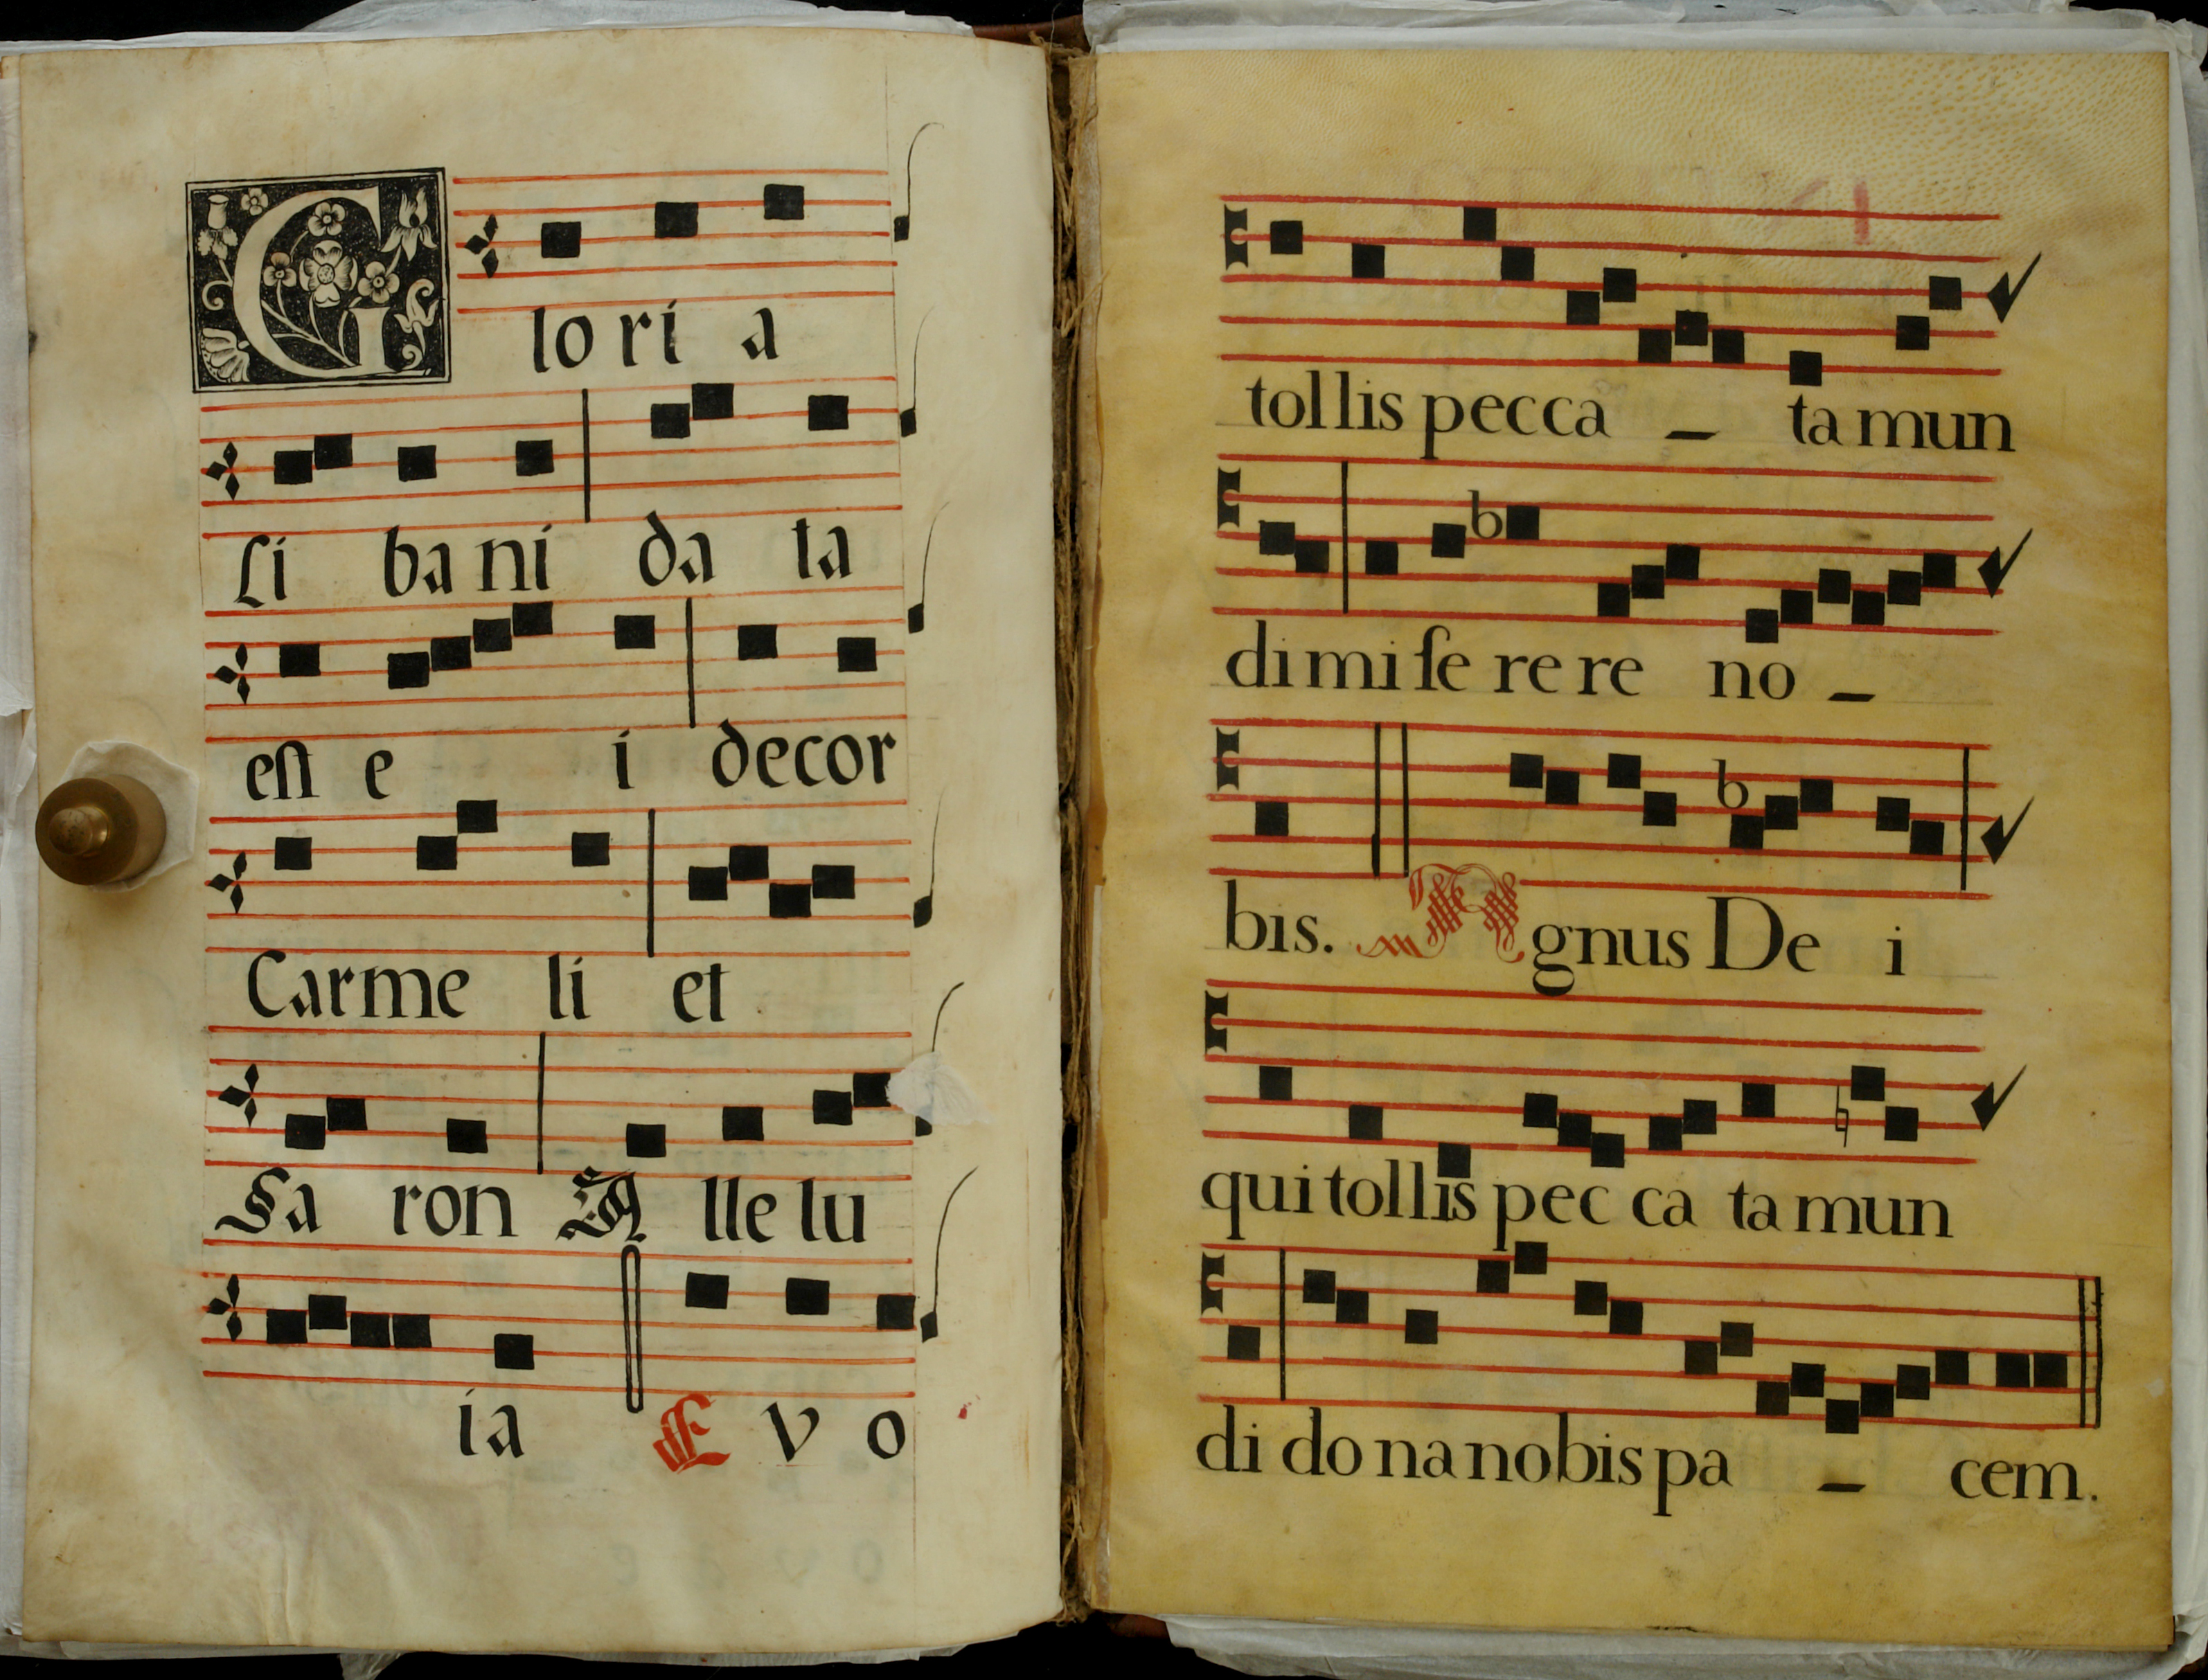 Glo ri a
Li ba ni da ta
est e i decor
Carme li et
Sa ron A lle lu
ia E v o
tol lis pec ca _ ta mun
di mi ſe re re no _
bis. Agnus De i
qui tol lis pec ca ta mun
di do na nobis pa _ cem.